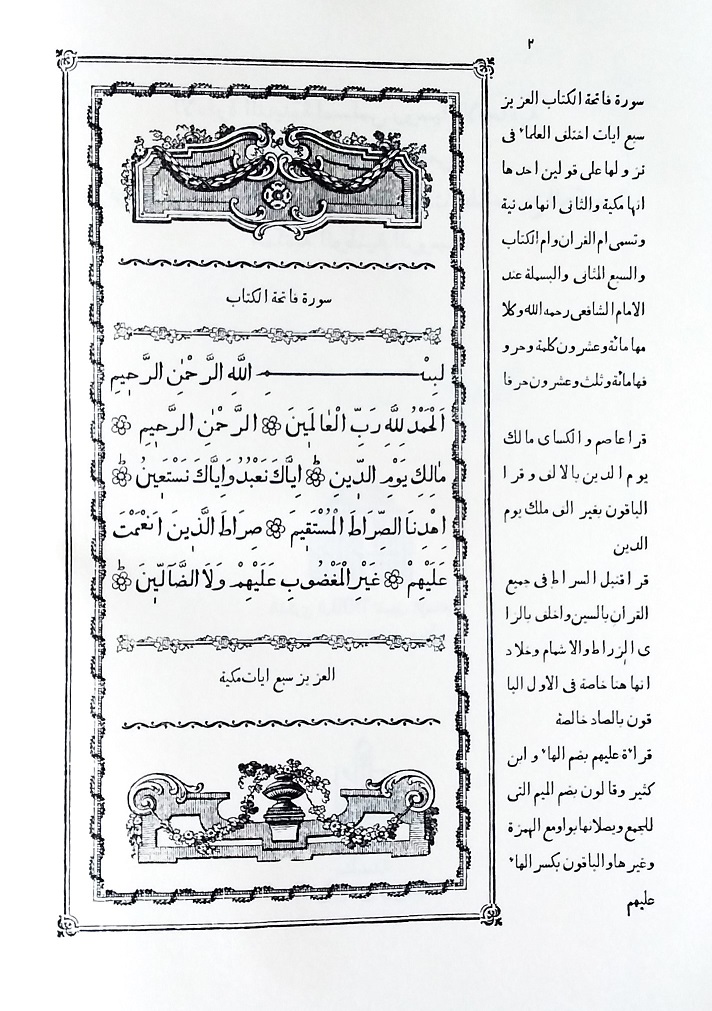 ٢
سورة فاتحة الكتاب العزيز
سبع ايات اختلف العلماء فى
نزولها على قولين احدها
انها مكية والثانى انها مدنية
وتسمى ام القران وام الكتاب
والسبع المثانى والبسملة عند
الامام الشافعى رحمه الله وكلا
مها مائة وعشرون كلمة وحرو
فها مائة وثلث وعشرون حرفا
قرا عاصم والكساى مالك
يوم الدين بالالف وقرا
الباقون بغير الف ملك يوم
الدين
قرا قنبل السراط فى جميع
القران بالسين وخلف بالزا
ى الزراط والاشمام وخلاد
انها هنا خاصة فى الاول البا
قون بالصاد خالصة
قراءة عليهم بضم الهاء و ابن
كثير وقالون بضم الميم التى
للجمع ويصلانها بواو مع الهمزة
وغيرها والباقون بكسر الهاء
عليهم
سورة فاتحة الكتاب
بِسْمِ اللّٰهِ الرَّحْمٰنِ الرَّحِيمِ
اَلْحَمْدُ لِلّٰهِ رَبِّ الْعٰالَمِينَ الرَّحْمٰنِ الرَّحِيمِ
مٰالِكِ يَوْمِ الدِّينِ اِيّاكَ نَعْبُدُ وَاِيّاكَ نَسْتَعِينُ
اِهْدِنَا الصِّرَاطَ الْمُسْتَقِيمَ صِرَاطَ الَّذِينَ اَنْعَمْتَ
عَلَيْهِمْ غَيْرِ الْمَغْضُوبِ عَلَيْهِمْ وَلَا الضَّالِّينَ
العزيز سبع ايات مكية